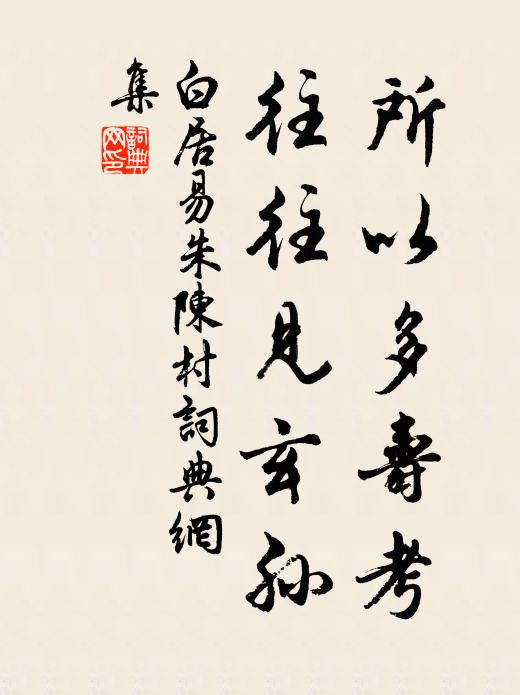 所以多壽考
往往見玄孫
白居易朱陳村詞典網
集
詞典
网印